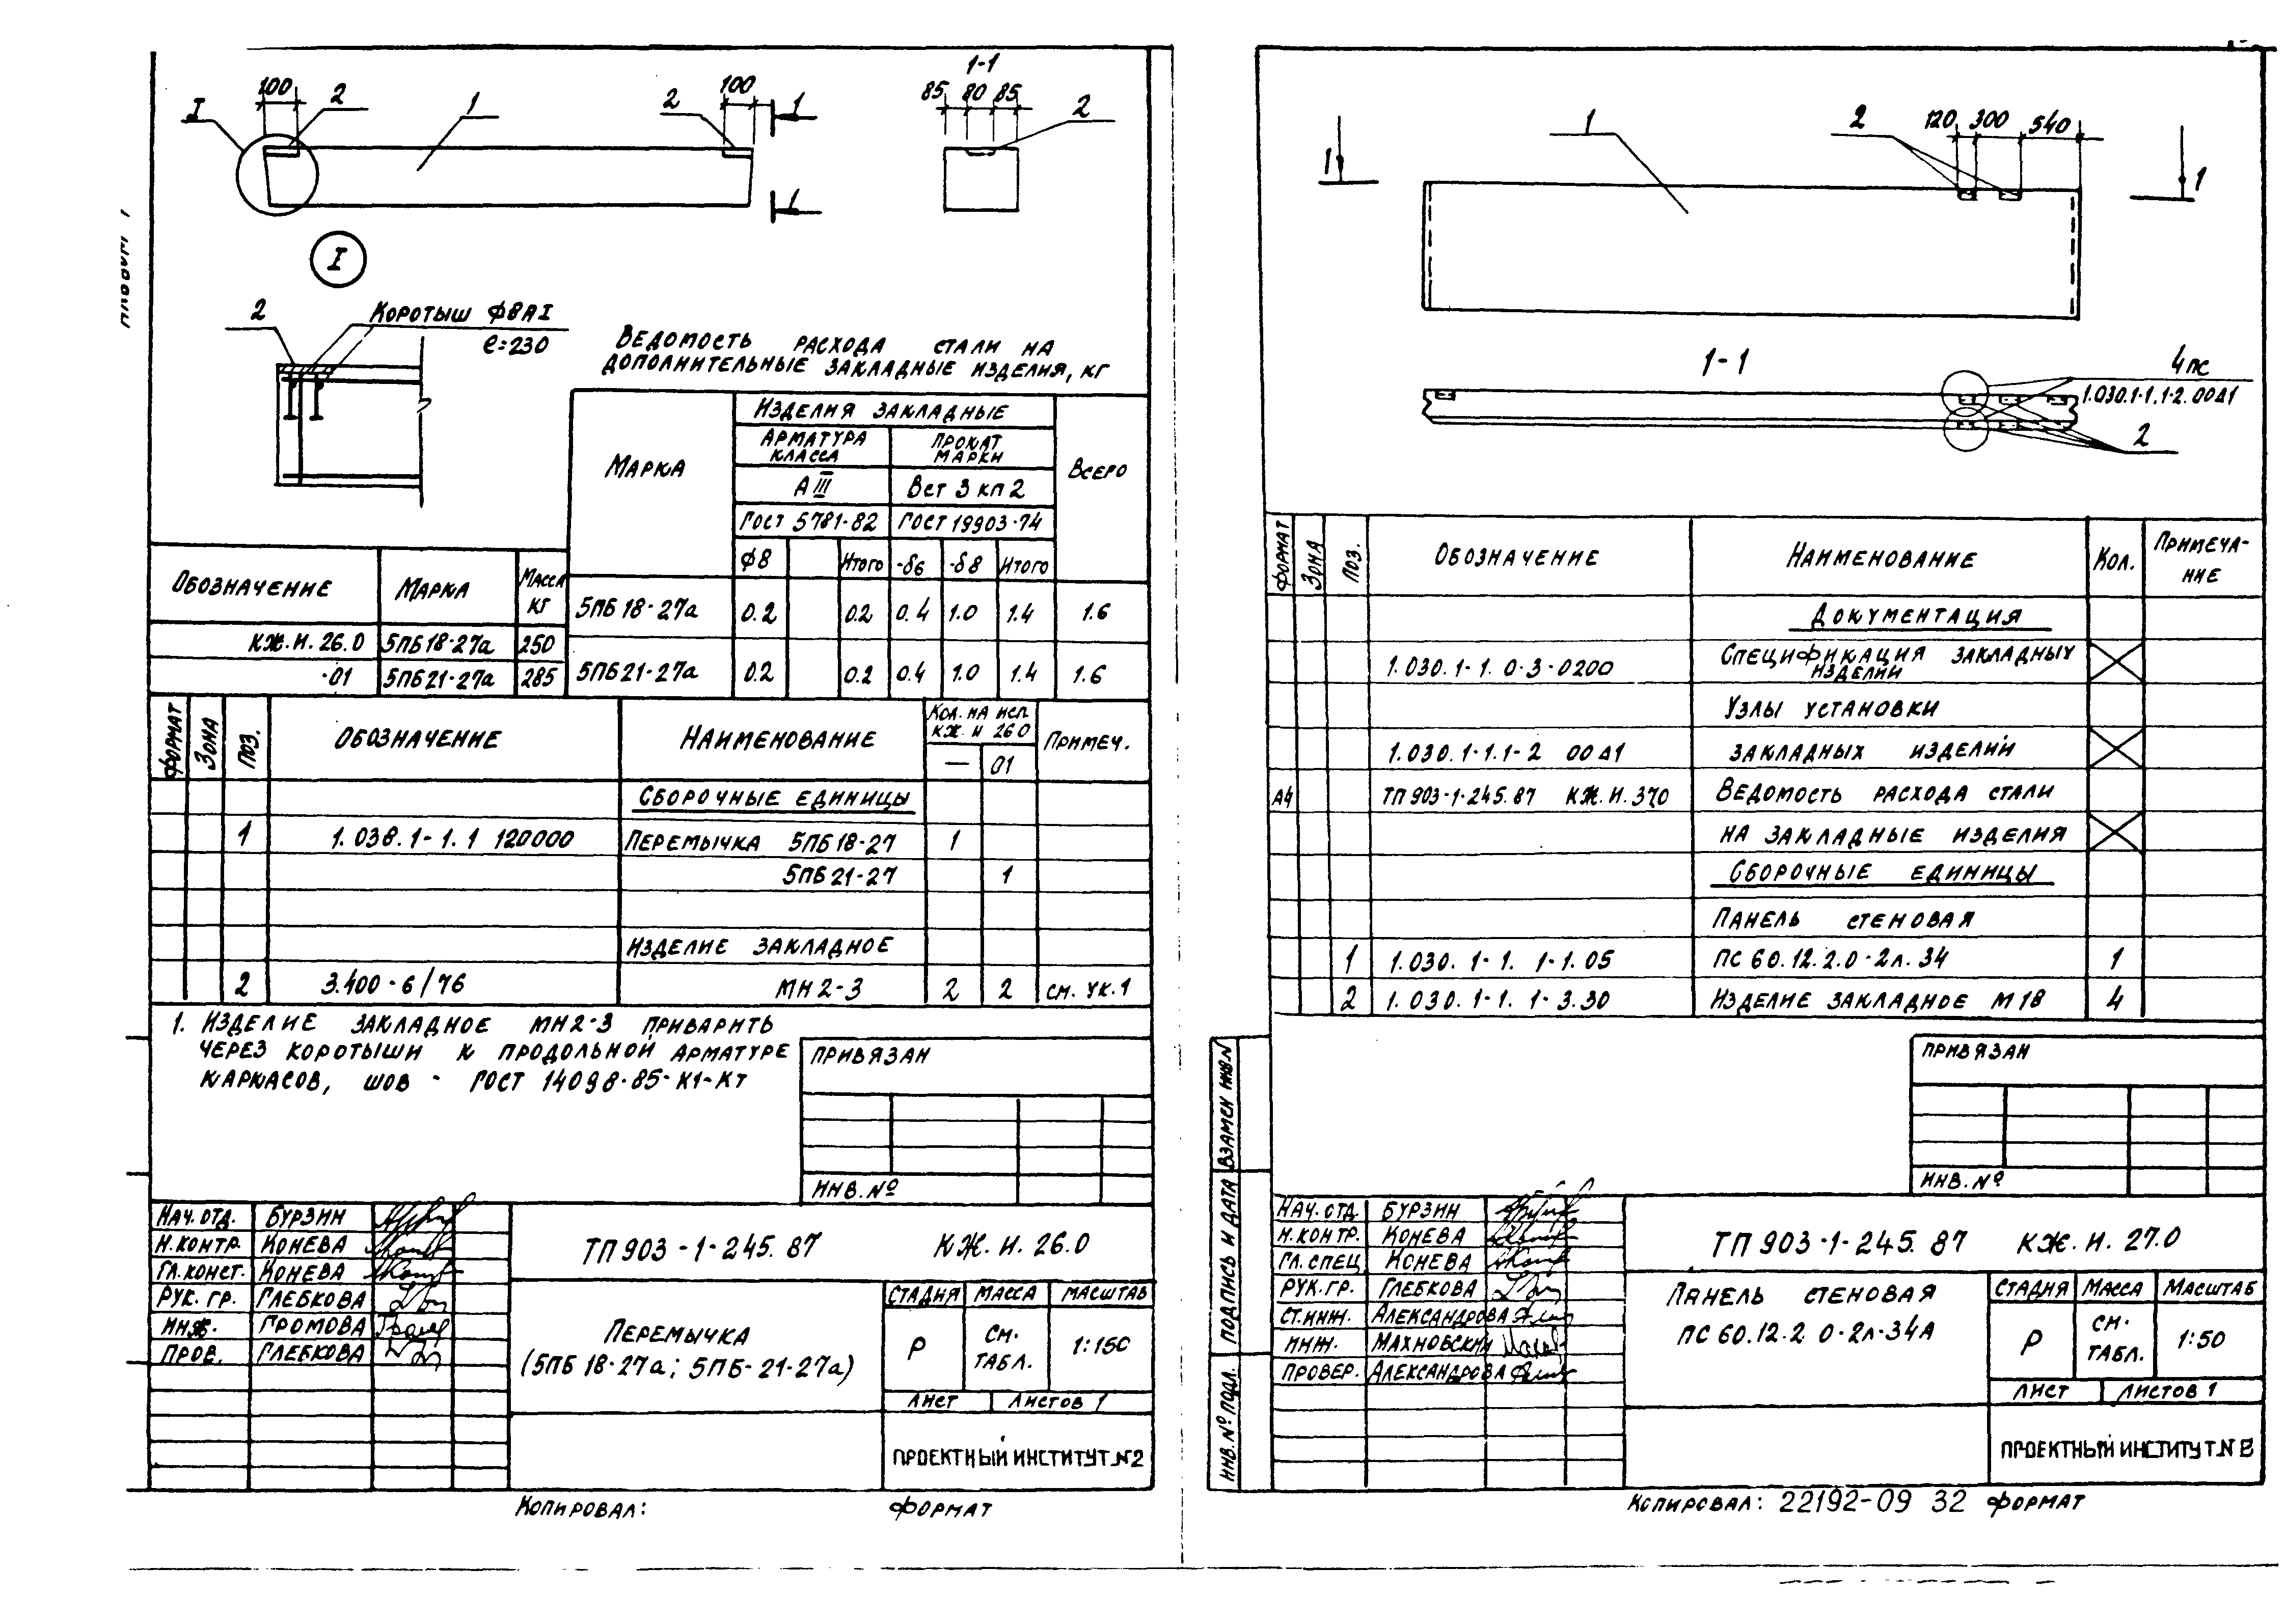 100
2
1
2
100
1
1
I
I
1-1
85 80 85
2
2
Коротыш ϕ8АI
ℓ=230
Ведомость расхода стали на
дополнительные закладные изделия, кг
Марка
Изделия закладные
Всего
Арматура класса
Прокат марки
А III
Вст 3 кп 2
Гост 5781-82
Гост 19903-74
ϕ8 Итого -δ6 -δ8 Итого
5ПБ 18-27а 0.2 0.2 0.4 1.0 1.4 1.6
5ПБ 21-27а 0.2 0.2 0.4 1.0 1.4 1.6
Обозначение Марка Масса кг
КЖ.И. 26.0 5ПБ 18-27а 250
-01 5ПБ 21-27а 285
Формат Зона Поз. Обозначение Наименование Кол. на исп. КЖ. И 26 0 Примеч.
— 01
Сборочные единицы
1 1.038.1-1.1 120000 Перемычка 5ПБ 18-27 1
5ПБ 21-27 1
Изделие закладное
2 3.400-6/76 МН 2-3 2 2 см. ук.1
1. Изделие закладное МН 2-3 приварить
через коротыши к продольной арматуре
каркасов, шов - ГОСТ 14098-85-К1-Кт
Привязан
Инв. №
Нач. отд. Бурзин
Н.контр. Конева
Гл.конст. Конева
Рук. гр. Глебкова
Инж. Громова
Пров. Глебкова
ТП 903-1-245.87 КЖ. И. 26.0
Перемычка
(5ПБ 18-27а; 5ПБ-21-27а)
Стадия Масса Масштаб
Р см. табл. 1:150
Лист Листов 1
Проектный институт №2
Копировал: Формат
1
2
120 300 540
1
1
1-1
4пс
1.030.1-1.1-2.00Д1
2
Формат Зона Поз. Обозначение Наименование Кол. Примеча-
ние
Документация
1.030.1-1. 0-3-0200 Спецификация закладных
изделий
Узлы установки
1.030.1-1.1-2 00Д1 закладных изделий
А4 ТП 903-1-245.87 КЖ.И.370 Ведомость расхода стали
на закладные изделия
Сборочные единицы
Панель стеновая
1 1.030.1-1. 1-1.05 ПС 60.12.2.0-2л.34 1
2 1.030.1-1. 1-3.30 Изделие закладное М 18 4
Привязан
Инв. №
Взамен инв.№
Подпись и дата
Инв. № подл.
Нач. отд. Бурзин
Н.контр. Конева
Гл. спец. Конева
Рук. гр. Глебкова
Ст.инж. Александрова
Инж. Махновский
Провер. Александрова
ТП 903-1-245.87 КЖ. И. 27.0
Панель стеновая
ПС 60.12.2 0-2л-34А
Стадия Масса Масштаб
Р см. табл. 1:50
Лист Листов 1
Проектный институт №
Копировал: 22192-09 32 Формат